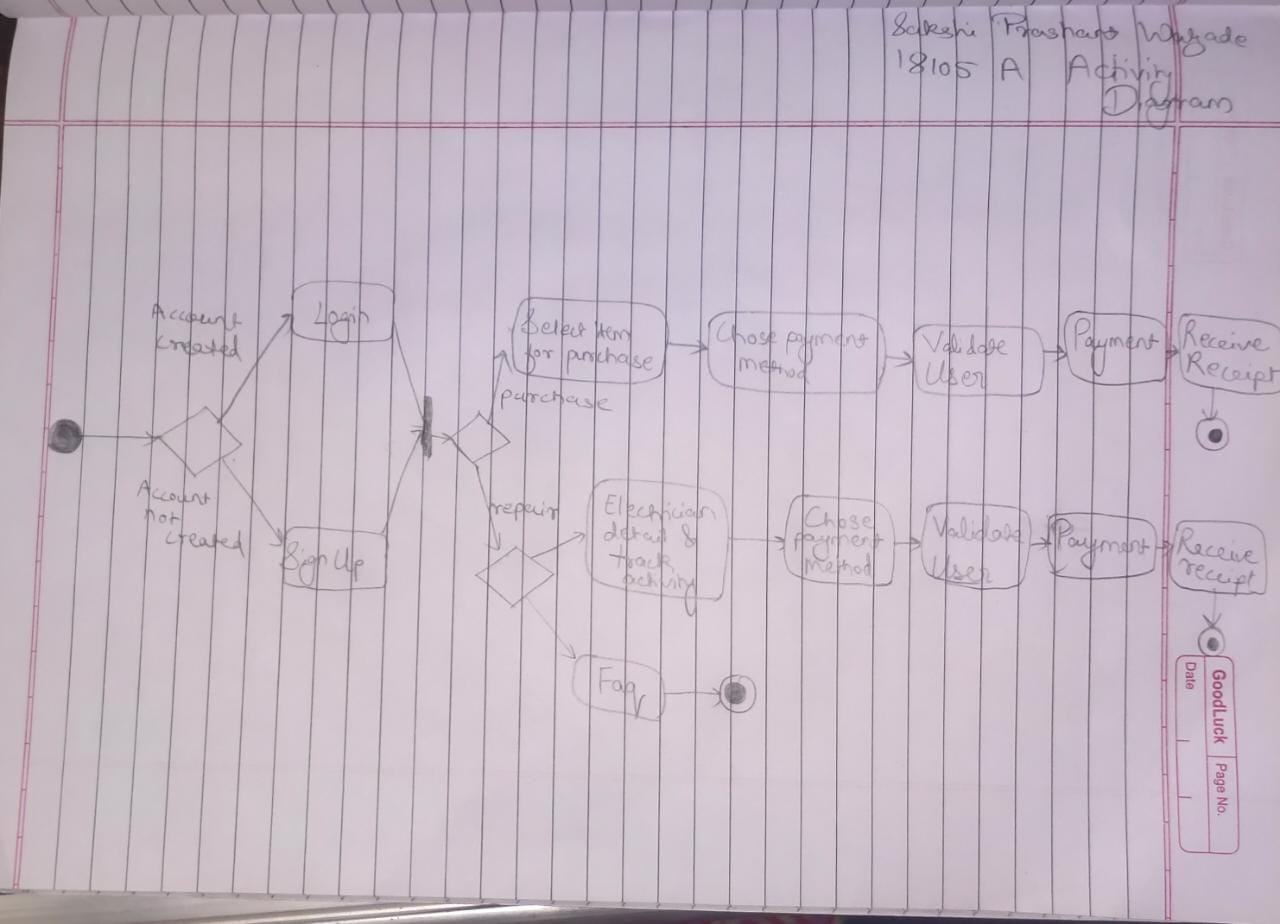 Sakshi Prashant
18105 A Activity
Diagram
Account
created
Login
Account
not
created
Sign Up
purchase
Select Item
for purchase
Chose payment
method
Validate
User
Payment
Receive
Receipt
repair
Electrician
detail &
track
activity
Chose
payment
Method
Validate
User
Payment
Receive
receipt
Faq
GoodLuck
Page No.
Date